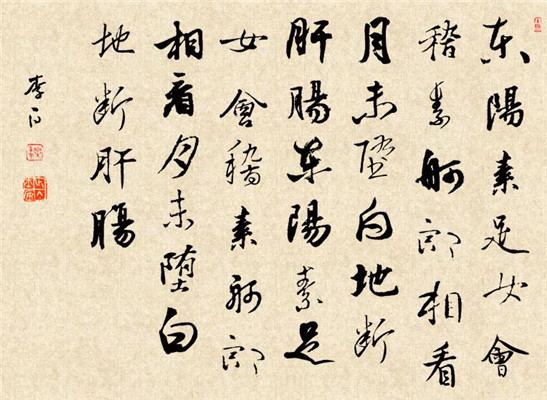 東陽素足女會
稽素舸郎相看
月未墜白地斷
肝腸東陽素足
女會稽素舸郎
相看月未堕白
地斷肝腸
李白